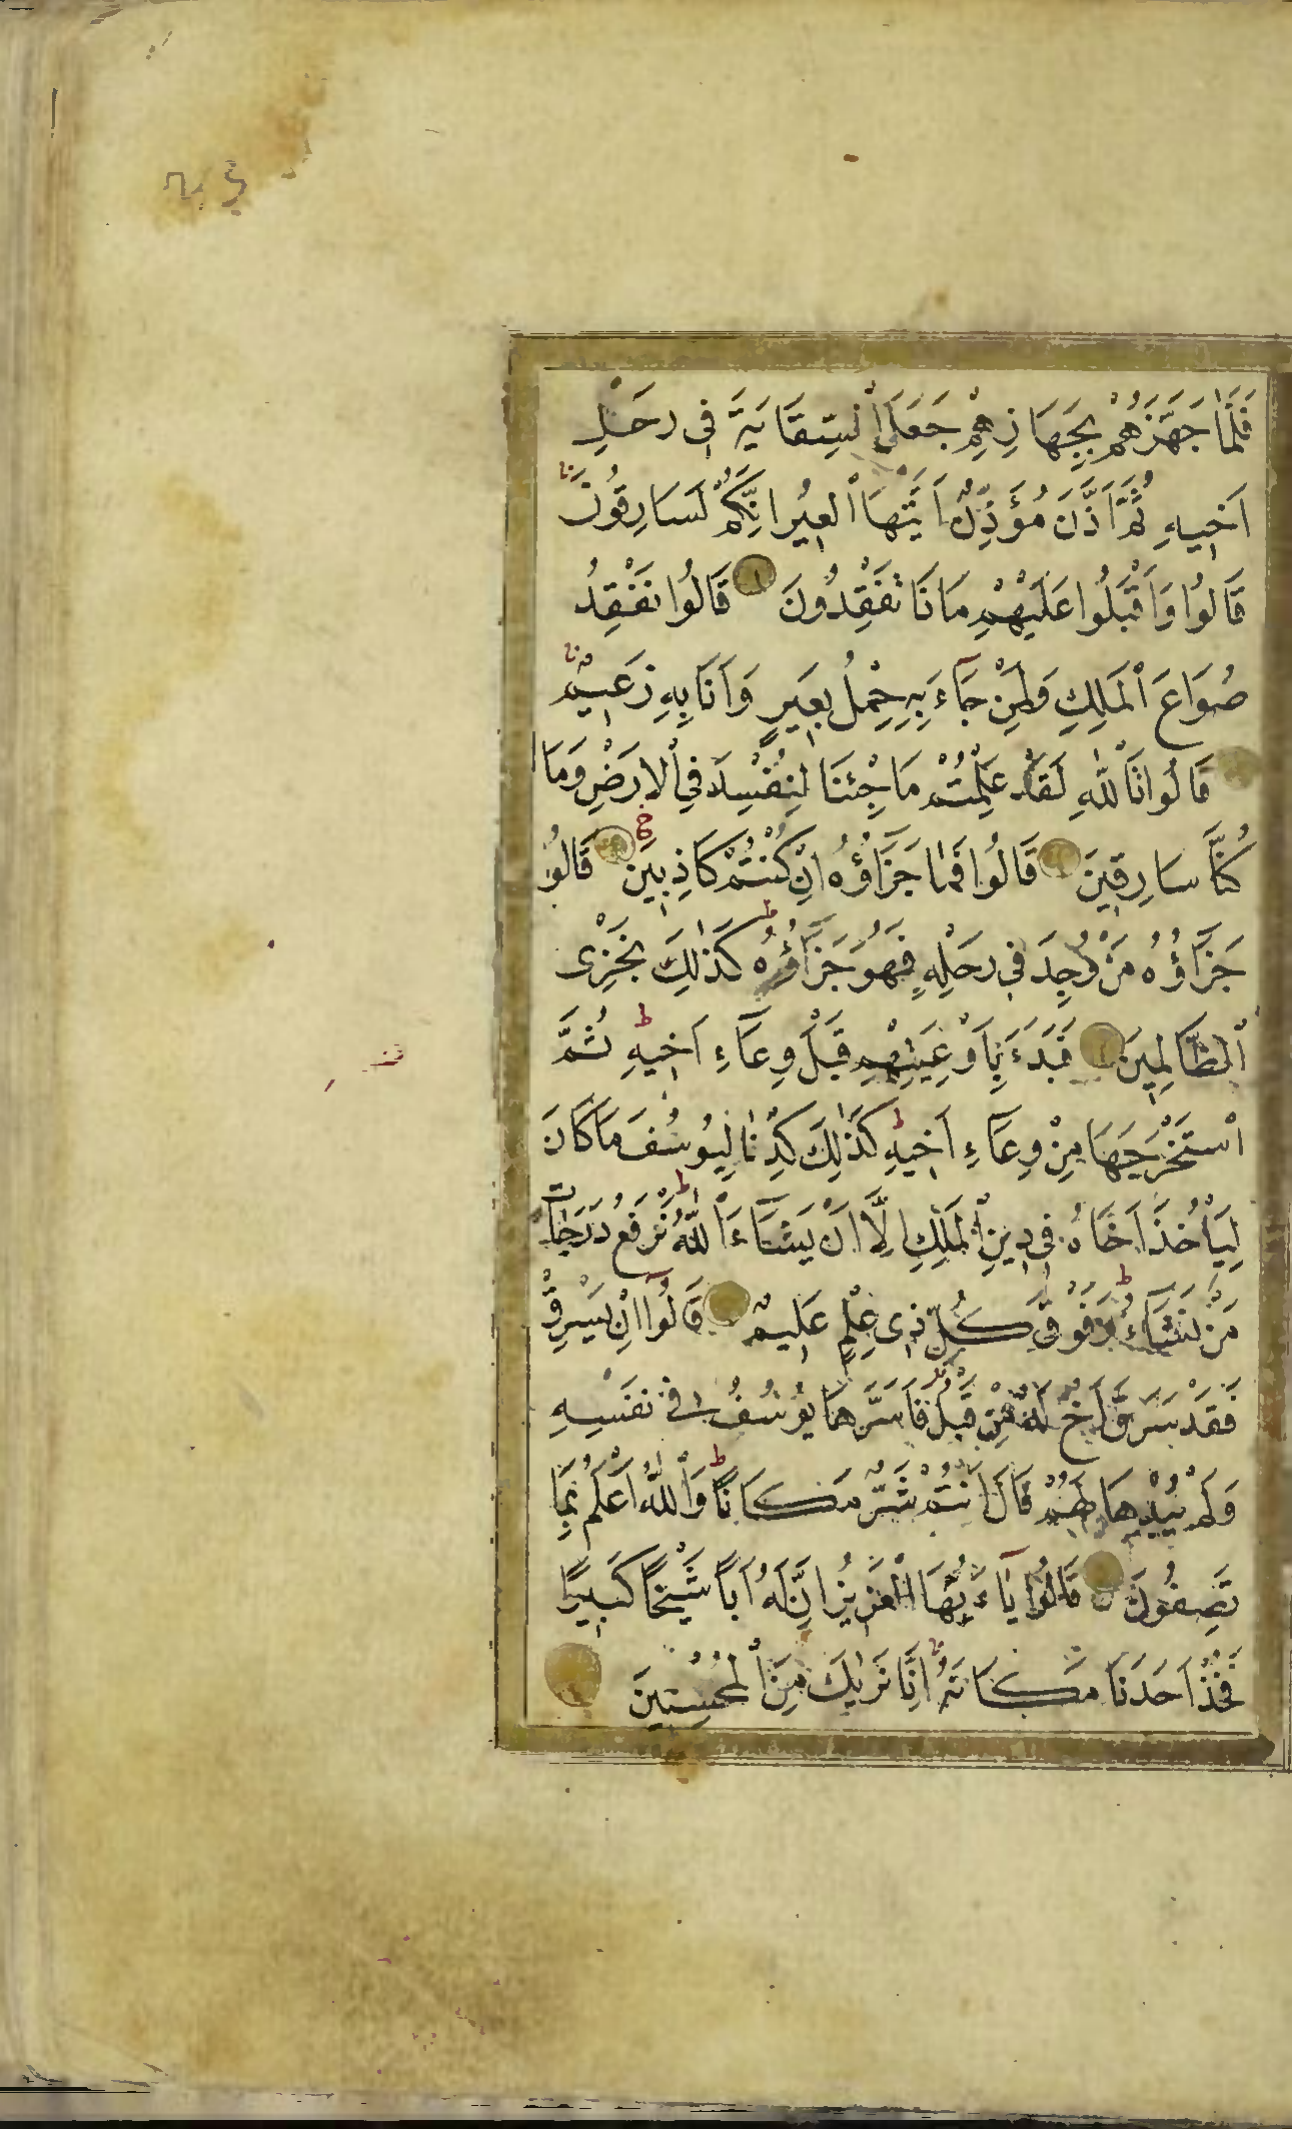 فَلَمَّا جَهَّزَهُمْ بِجَهَازِهِمْ جَعَلَ ٱلسِّقَايَةَ فِى رَحْلِ
اَخِيهِ ثُمَّ اَذَّنَ مُؤَذِّنٌ اَيَّتُهَا ٱلْعِيرُ اِنَّكُمْ لَسَارِقُونَ
قَالُوا وَاَقْبَلُوا عَلَيْهِمْ مَاذَا تَفْقِدُونَ قَالُوا نَفْقِدُ
صُوَاعَ ٱلْمَلِكِ وَلِمَنْ جَآءَ بِهِ حِمْلُ بَعِيرٍ وَاَنَا بِهِ زَعِيمٌ
قَالُوا تَاللّٰهِ لَقَدْ عَلِمْتُمْ مَا جِئْنَا لِنُفْسِدَ فِى ٱلْاَرْضِ وَمَا
كُنَّا سَارِقِينَ قَالُوا فَمَا جَزَآؤُهُ اِنْ كُنْتُمْ كَاذِبِينَ قَالُوا
جَزَآؤُهُ مَنْ وُجِدَ فِى رَحْلِهِ فَهُوَ جَزَآؤُهُ كَذٰلِكَ نَجْزِى
ٱلظَّالِمِينَ فَبَدَءَ بِاَوْعِيَتِهِمْ قَبْلَ وِعَآءِ اَخِيهِ ثُمَّ
ٱسْتَخْرَجَهَا مِنْ وِعَآءِ اَخِيهِ كَذٰلِكَ كِدْنَا لِيُوسُفَ مَا كَانَ
لِيَأْخُذَ اَخَاهُ فِى دِينِ ٱلْمَلِكِ اِلَّا اَنْ يَشَآءَ ٱللّٰهُ نَرْفَعُ دَرَجَاتٍ
مَنْ نَشَآءُ وَفَوْقَ كُلِّ ذِى عِلْمٍ عَلِيمٌ قَالُوٓا اِنْ يَسْرِقْ
فَقَدْ سَرَقَ اَخٌ لَهُ مِنْ قَبْلُ فَاَسَرَّهَا يُوسُفُ فِى نَفْسِهِ
وَلَمْ يُبْدِهَا لَهُمْ قَالَ اَنْتُمْ شَرٌّ مَكَانًا وَٱللّٰهُ اَعْلَمُ بِمَا
تَصِفُونَ قَالُوا يَآءَيُّهَا ٱلْعَزِيزُ اِنَّ لَهُ اَبًا شَيْخًا كَبِيرًا
فَخُذْ اَحَدَنَا مَكَانَهُ اِنَّا نَرٰيكَ مِنَ ٱلْمُحْسِنِينَ